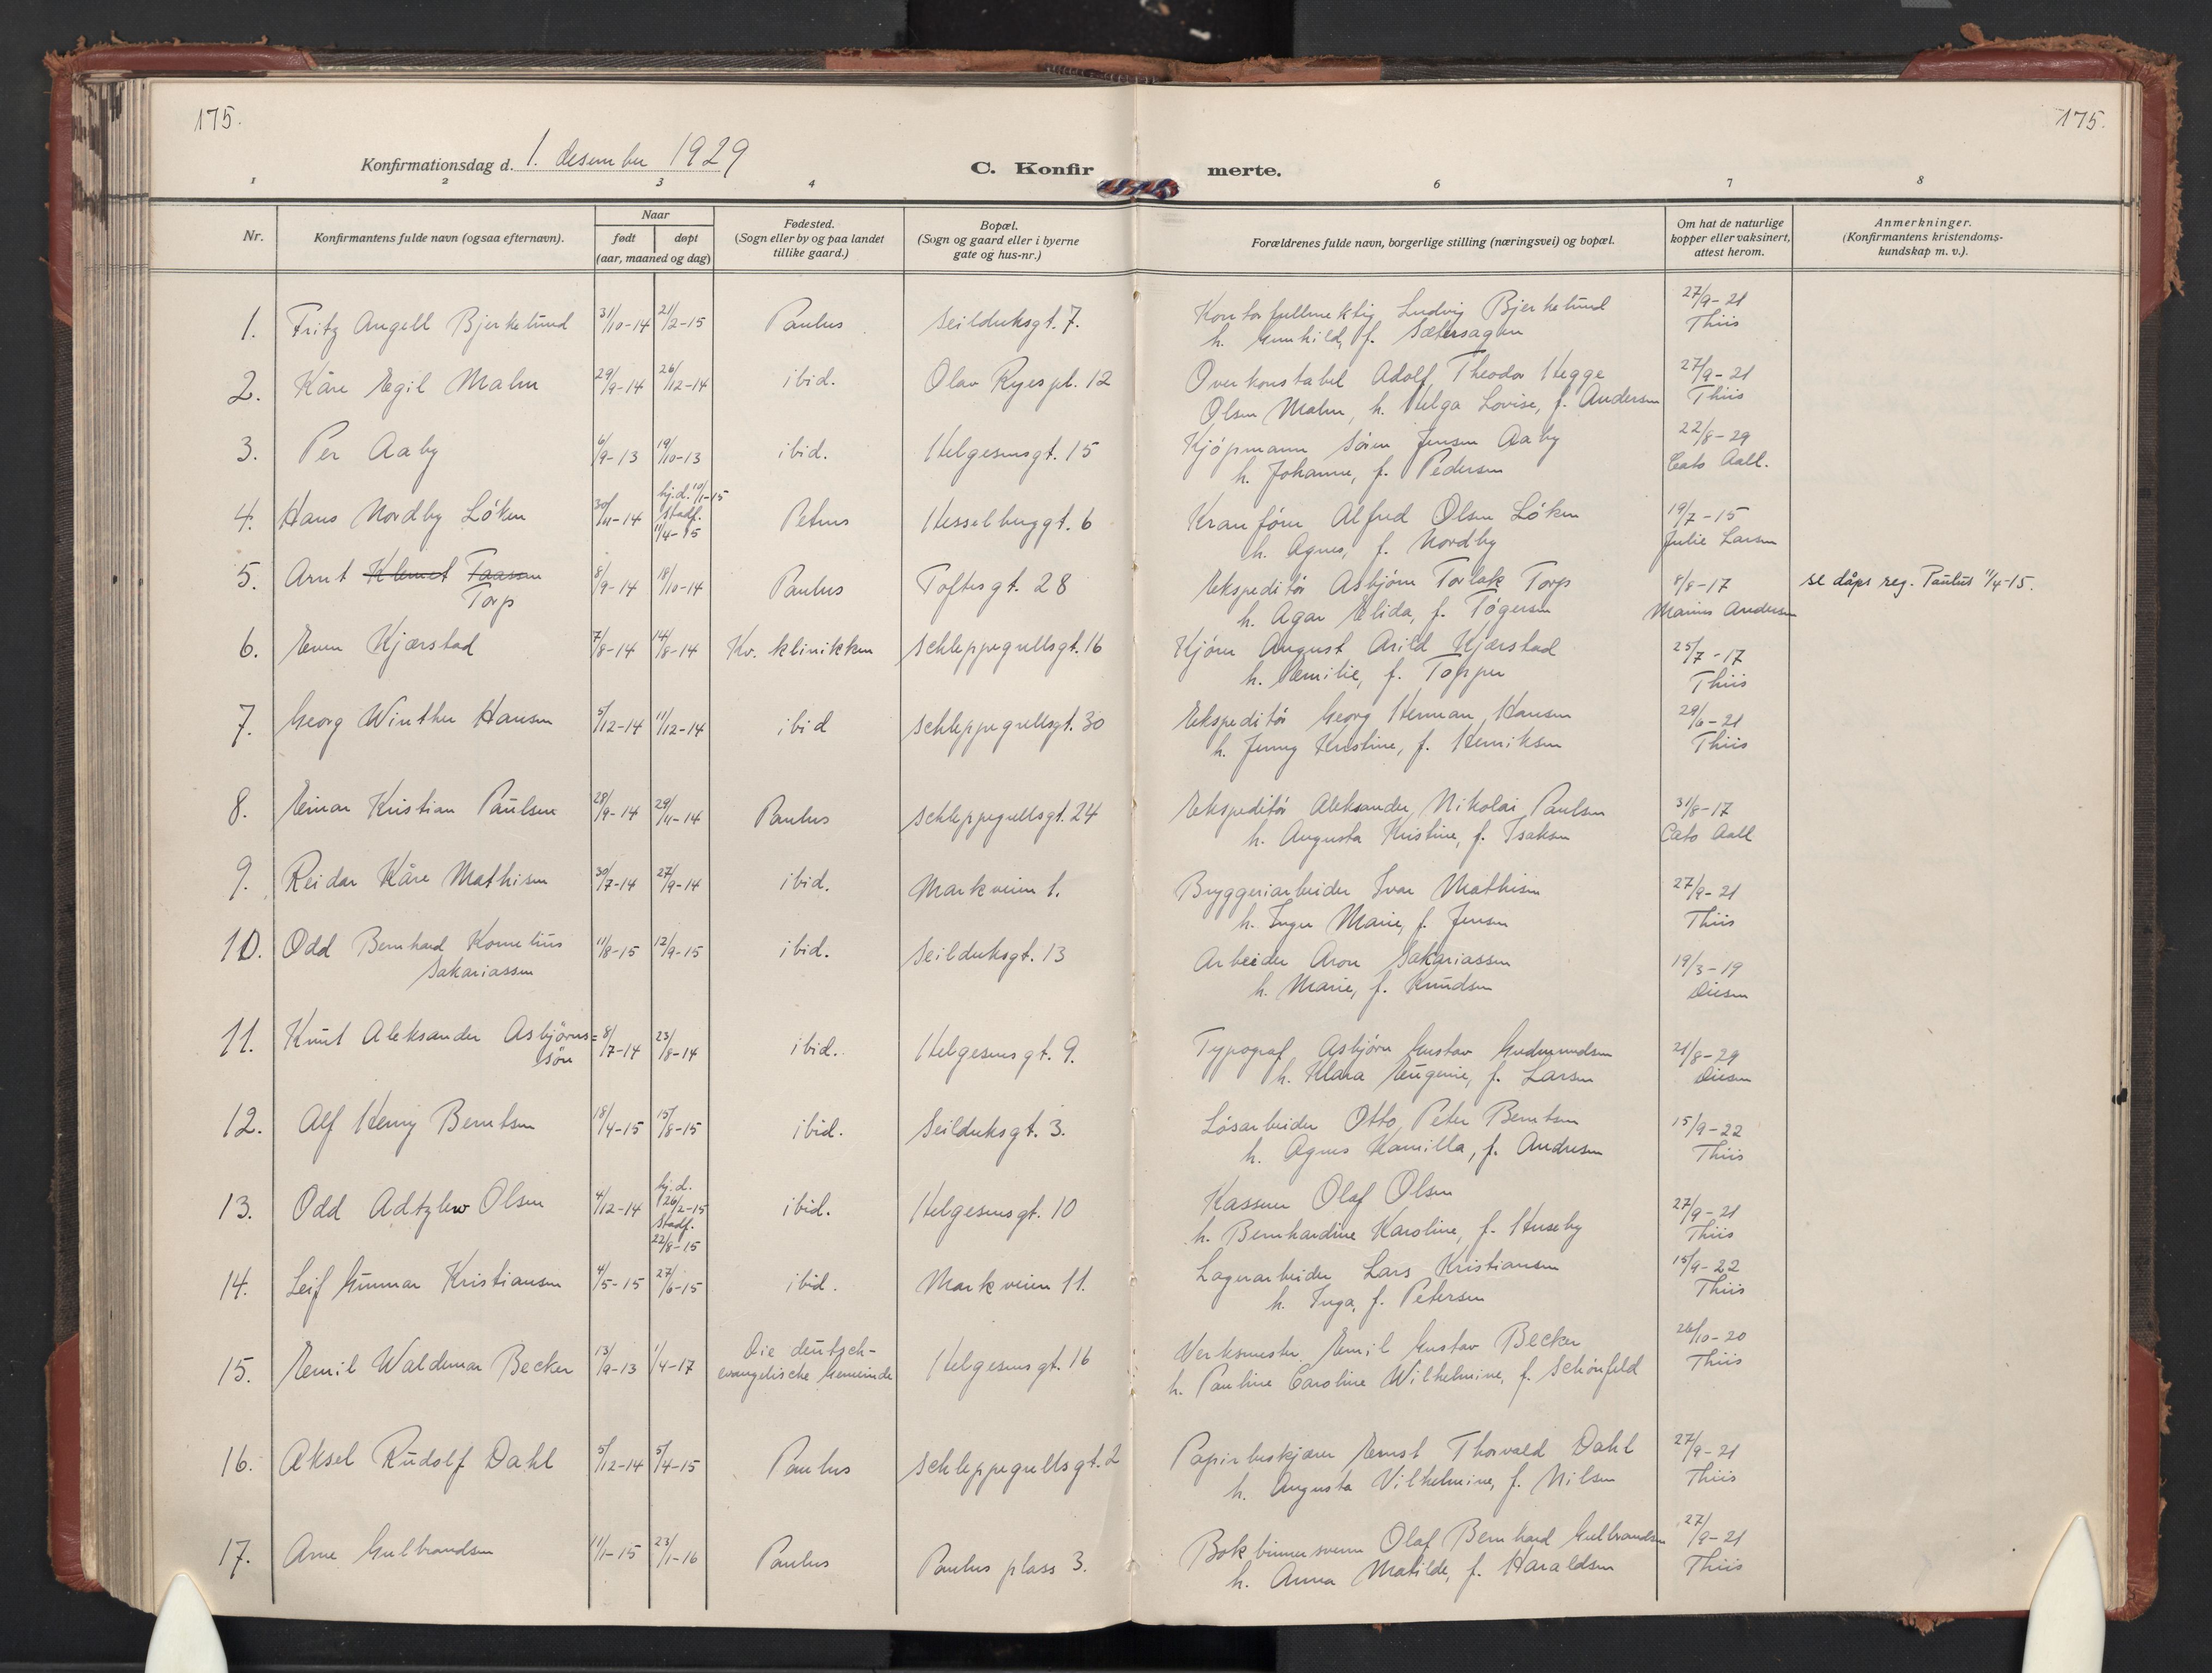 175.
175.
Konfirmationsdag d. 1. desember 1929
C. Konfirmerte.
1 2 3 4 6 7 8
Nr.
Konfirmantens fulde navn (ogsaa efternavn).
Naar
født døpt
(aar, maaned og dag)
Fødested.
(Sogn eller by og paa landet
tillike gaard.)
Bopæl.
(Sogn og gaard eller i byerne
gate og hus-nr.)
Forældrenes fulde navn, borgerlige stilling (næringsvei) og bopæl.
Om hat de naturlige
kopper eller vaksinert,
attest herom.
Anmerkninger.
(Konfirmantens kristendoms-
kundskap m. v.).
1. Fritz Angell Bjerkelund 31/10-14 21/2-15 Paulus Seilduksgt. 7. Kontorfullmektig Ludvig Bjerkelund 27/9-21
h. Gunhild, f. Sætersagen Thiis
2. Kåre Egil Malm 29/9-14 26/12-14 ibid. Olav Ryes pl. 12 Overkonstabel Adolf Theodor Hegge 27/9-21
Olsen Malm, h. Helga Lovise, f. Andersen Thiis
3. Per Aaby 6/9-13 19/10-13 ibid. Helgesensgt. 15 Kjöpmann Sören Jensen Aaby 22/8-29
h. Johanne, f. Pedersen Cato Aall.
4. Hans Nordby Löken 30/11-14 hj.d. 10/1-15 stadf. 11/4-15 Petrus Hesselberggt. 6 Kranförer Alfred Olsen Löken 19/7-15
h. Agnes, f. Nordby Julie Larsen
5. Arnt Klemet Taassen 8/9-14 18/10-14 Paulus Toftesgt. 28 Ekspeditör Asbjörn Torlak Torp 8/8-17 se dåps reg. Paulus 11/4-15.
Torp h. Agar Elida, f. Tögersen Marius Andersen
6. Even Kjærstad 7/8-14 14/8-14 Kv. klinikken Schleppegrellsgt. 16 Kjörer August Arild Kjærstad 25/7-17
h. Emilie, f. Topper Thiis
7. Georg Winther Hansen 5/12-14 11/12-14 ibid Schleppegrellsgt. 30 Ekspeditör Georg Herman Hansen 29/6-21
h. Jenny Kristine, f. Henriksen Thiis
8. Einar Kristian Paulsen 28/9-14 29/11-14 Paulus Schleppegrellsgt. 24 Ekspeditör Aleksander Nikolai Paulsen 31/8-17
h. Augusta Kristine, f. Isaksen Cato Aall
9. Reidar Kåre Mathisen 30/7-14 27/9-14 ibid. Markveien 1. Bryggeriarbeider Ivar Mathisen 27/9-21
h. Inger Marie, f. Jensen Thiis
10. Odd Bernhard Kornelius 11/8-15 12/9-15 ibid. Seilduksgt. 13 Arbeider Aron Sakariassen 19/3-19
Sakariassen h. Marie, f. Knudsen Diesen
11. Knut Aleksander Asbjörns= 8/7-14 23/8-14 ibid. Helgesensgt. 9. Typograf Asbjörn Gustav Gudmundsen 21/8-29
sön h. Klara Eugenie, f. Larsen Diesen
12. Alf Henry Berntsen 18/4-15 15/8-15 ibid. Seilduksgt. 3. Lösarbeider Otto Peter Berntsen 15/9-22
h. Agnes Kamilla, f. Andresen Thiis
13. Odd Adtzlew Olsen 4/12-14 hj.d. 26/2-15 stadf. 22/8-15 ibid. Helgesensgt. 10 Kasserer Olaf Olsen 27/9-21
h. Bernhardine Karoline, f. Huseby Thiis
14. Leif Gunnar Kristiansen 4/5-15 27/6-15 ibid. Markveien 11. Lagerarbeider Lars Kristiansen 15/9-22
h. Inga, f. Petersen Thiis
15. Emil Waldemar Becker 13/9-13 1/4-17 Die deutsch- Helgesensgt. 16 Verksmester Emil Gustav Becker 26/10-20
evangelische Gemeinde h. Pauline Caroline Wilhelmine, f. Schönfeld Thiis
16. Aksel Rudolf Dahl 5/12-14 5/4-15 Paulus Schleppegrellsgt. 2 Papirbeskjærer Ernst Thorvald Dahl 27/9-21
h. Augusta Vilhelmine, f. Nilsen Thiis
17. Arne Gulbrandsen 11/1-15 23/1-16 Paulus Paulus plass 3. Bokbindersvenn Olaf Bernhard Gulbrandsen 27/9-21
h. Anna Matilde, f. Haraldsen Thiis